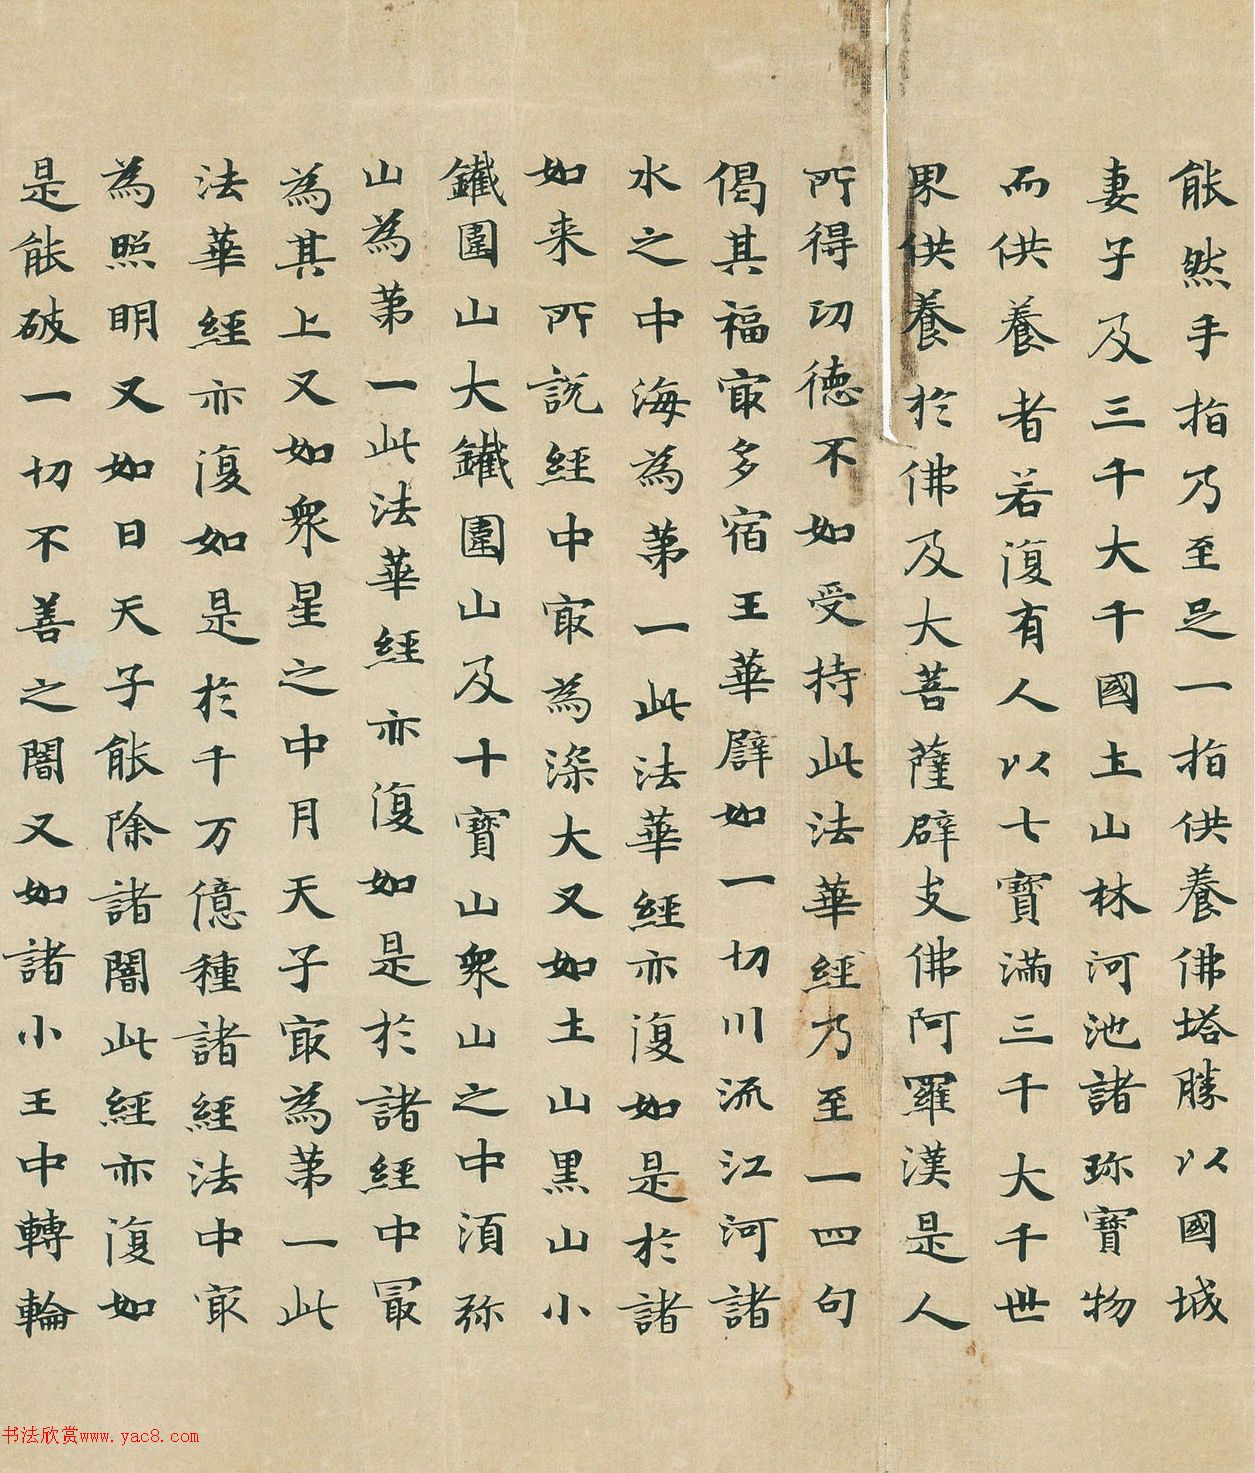 能然手指乃至足一指供養佛塔勝以國城
妻子及三千大千國土山林河池諸珎寶物
而供養者若復有人以七寶滿三千大千世
界供養於佛及大菩薩辟支佛阿羅漢是人
所得功德不如受持此法華經乃至一四句
偈其福冣多宿王華譬如一切川流江河諸
水之中海為苐一此法華經亦復如是於諸
如来所說經中冣為深大又如土山黑山小
鐵圍山大鐵圍山及十寶山衆山之中須弥
山為苐一此法華經亦復如是於諸經中冣
為其上又如衆星之中月天子冣為苐一此
法華經亦復如是於千万億種諸經法中冣
為照明又如日天子能除諸闇此經亦復如
是能破一切不善之闇又如諸小王中轉輪
书法欣赏www.yac8.com